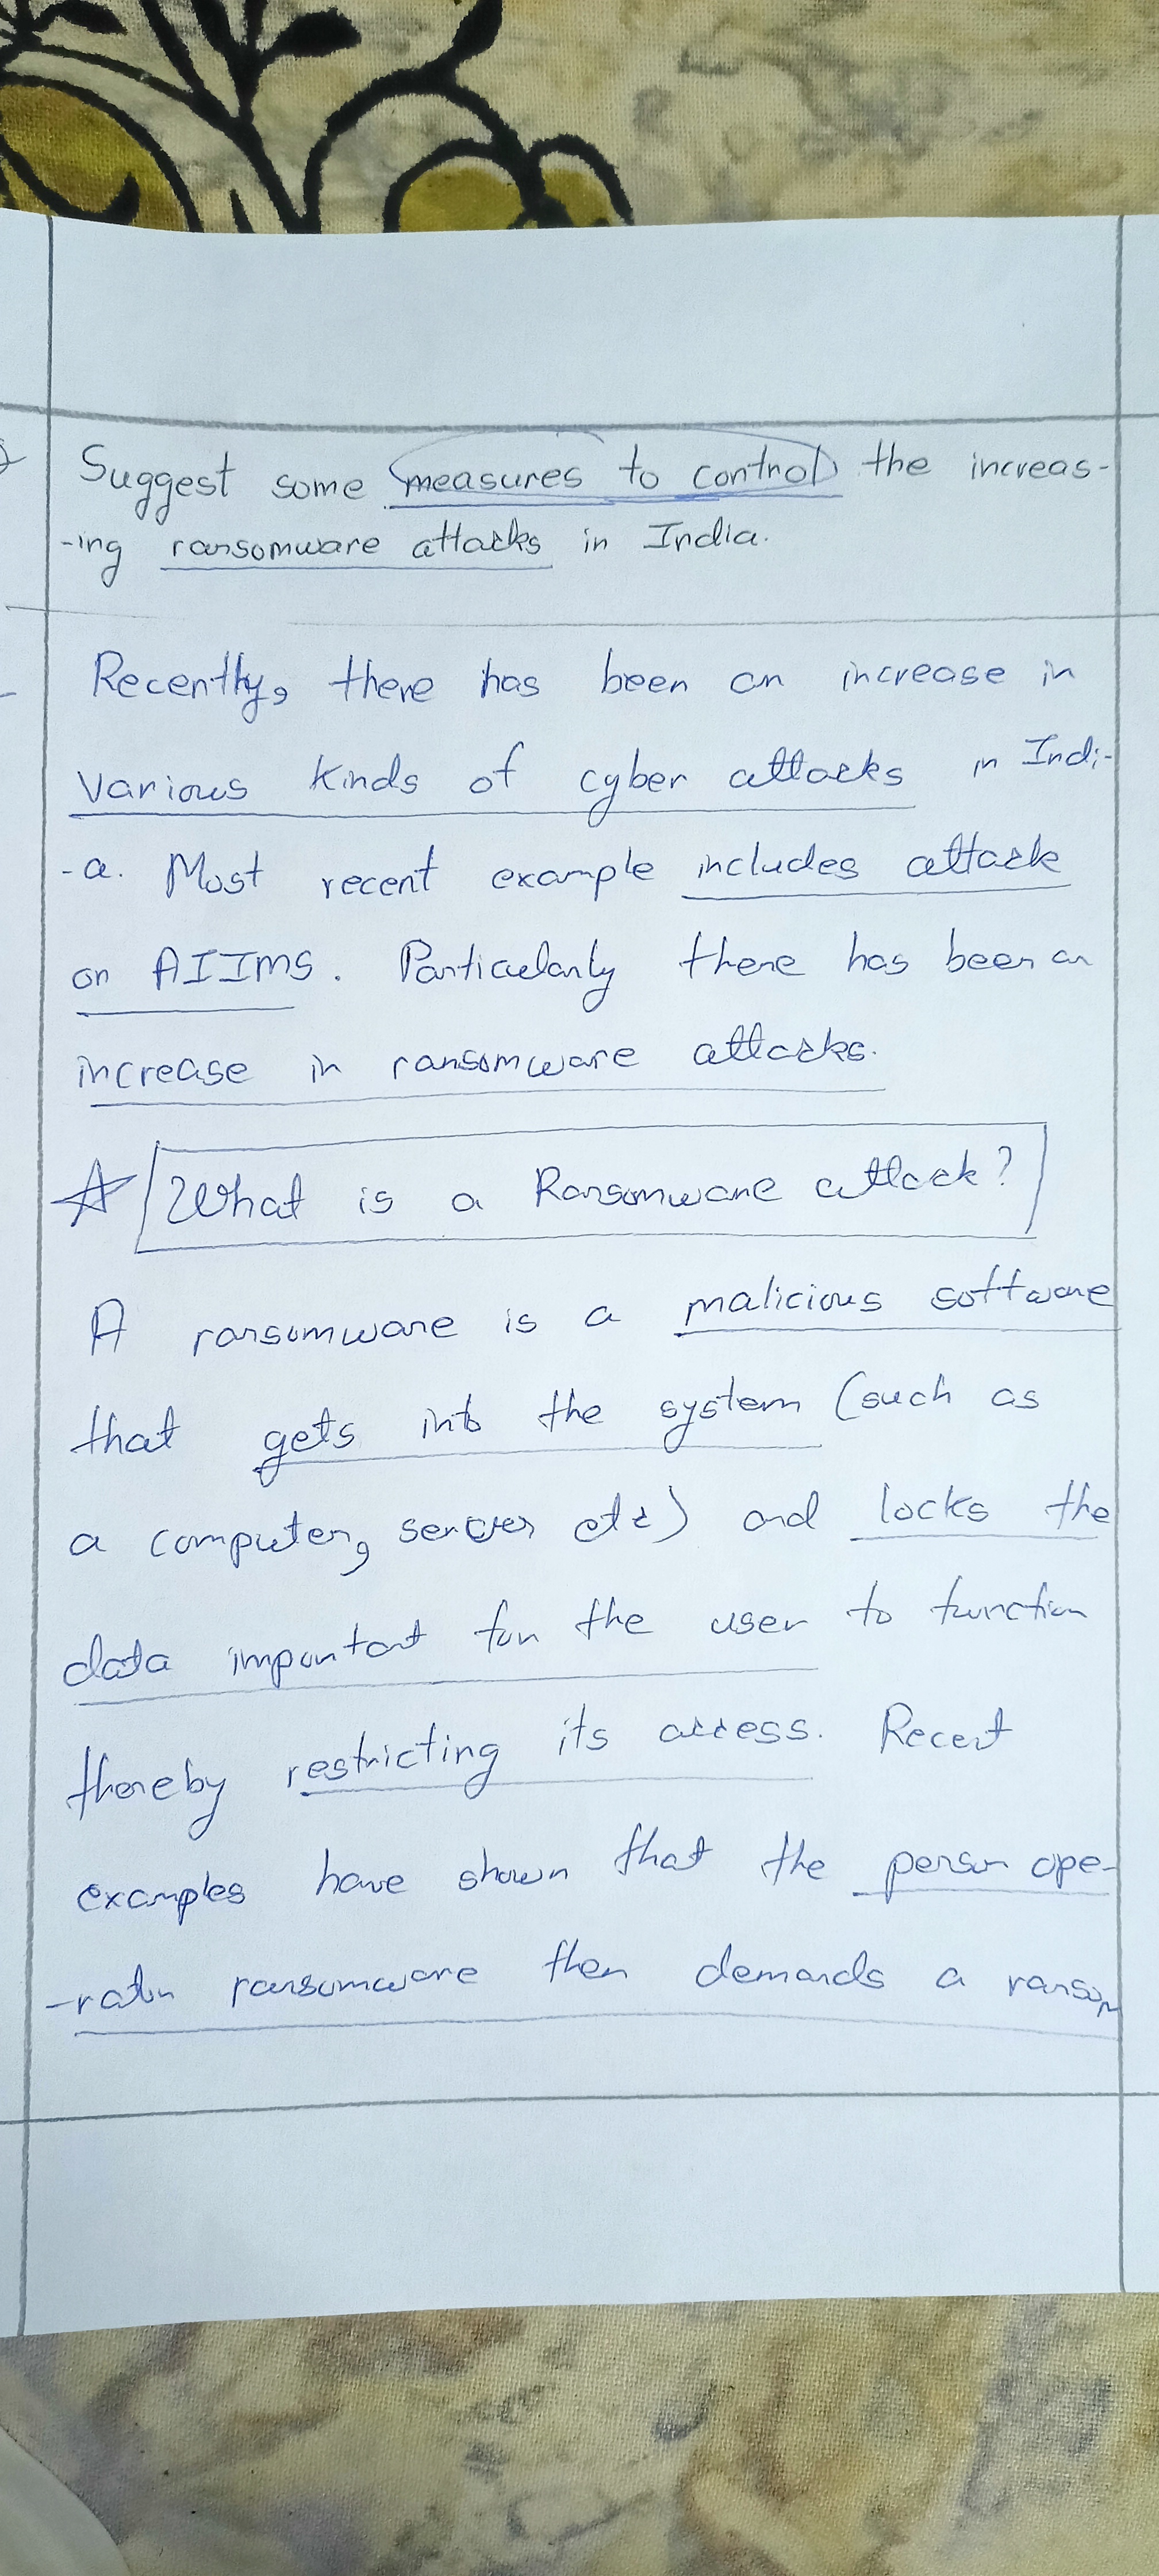 Suggest some measures to control the increas-
-ing ransomware attacks in India.
Recently, there has been an increase in
various kinds of cyber attacks in Indi-
-a. Most recent example includes attack
on AIIMS. Particularly there has been an
increase in ransomware attacks.
What is a Ransomware attack?
A ransomware is a malicious software
that gets into the system (such as
a computer, server etc) and locks the
data important for the user to function
thereby restricting its access. Recent
examples have shown that the person ope-
-ratin ransomware then demands a ransom